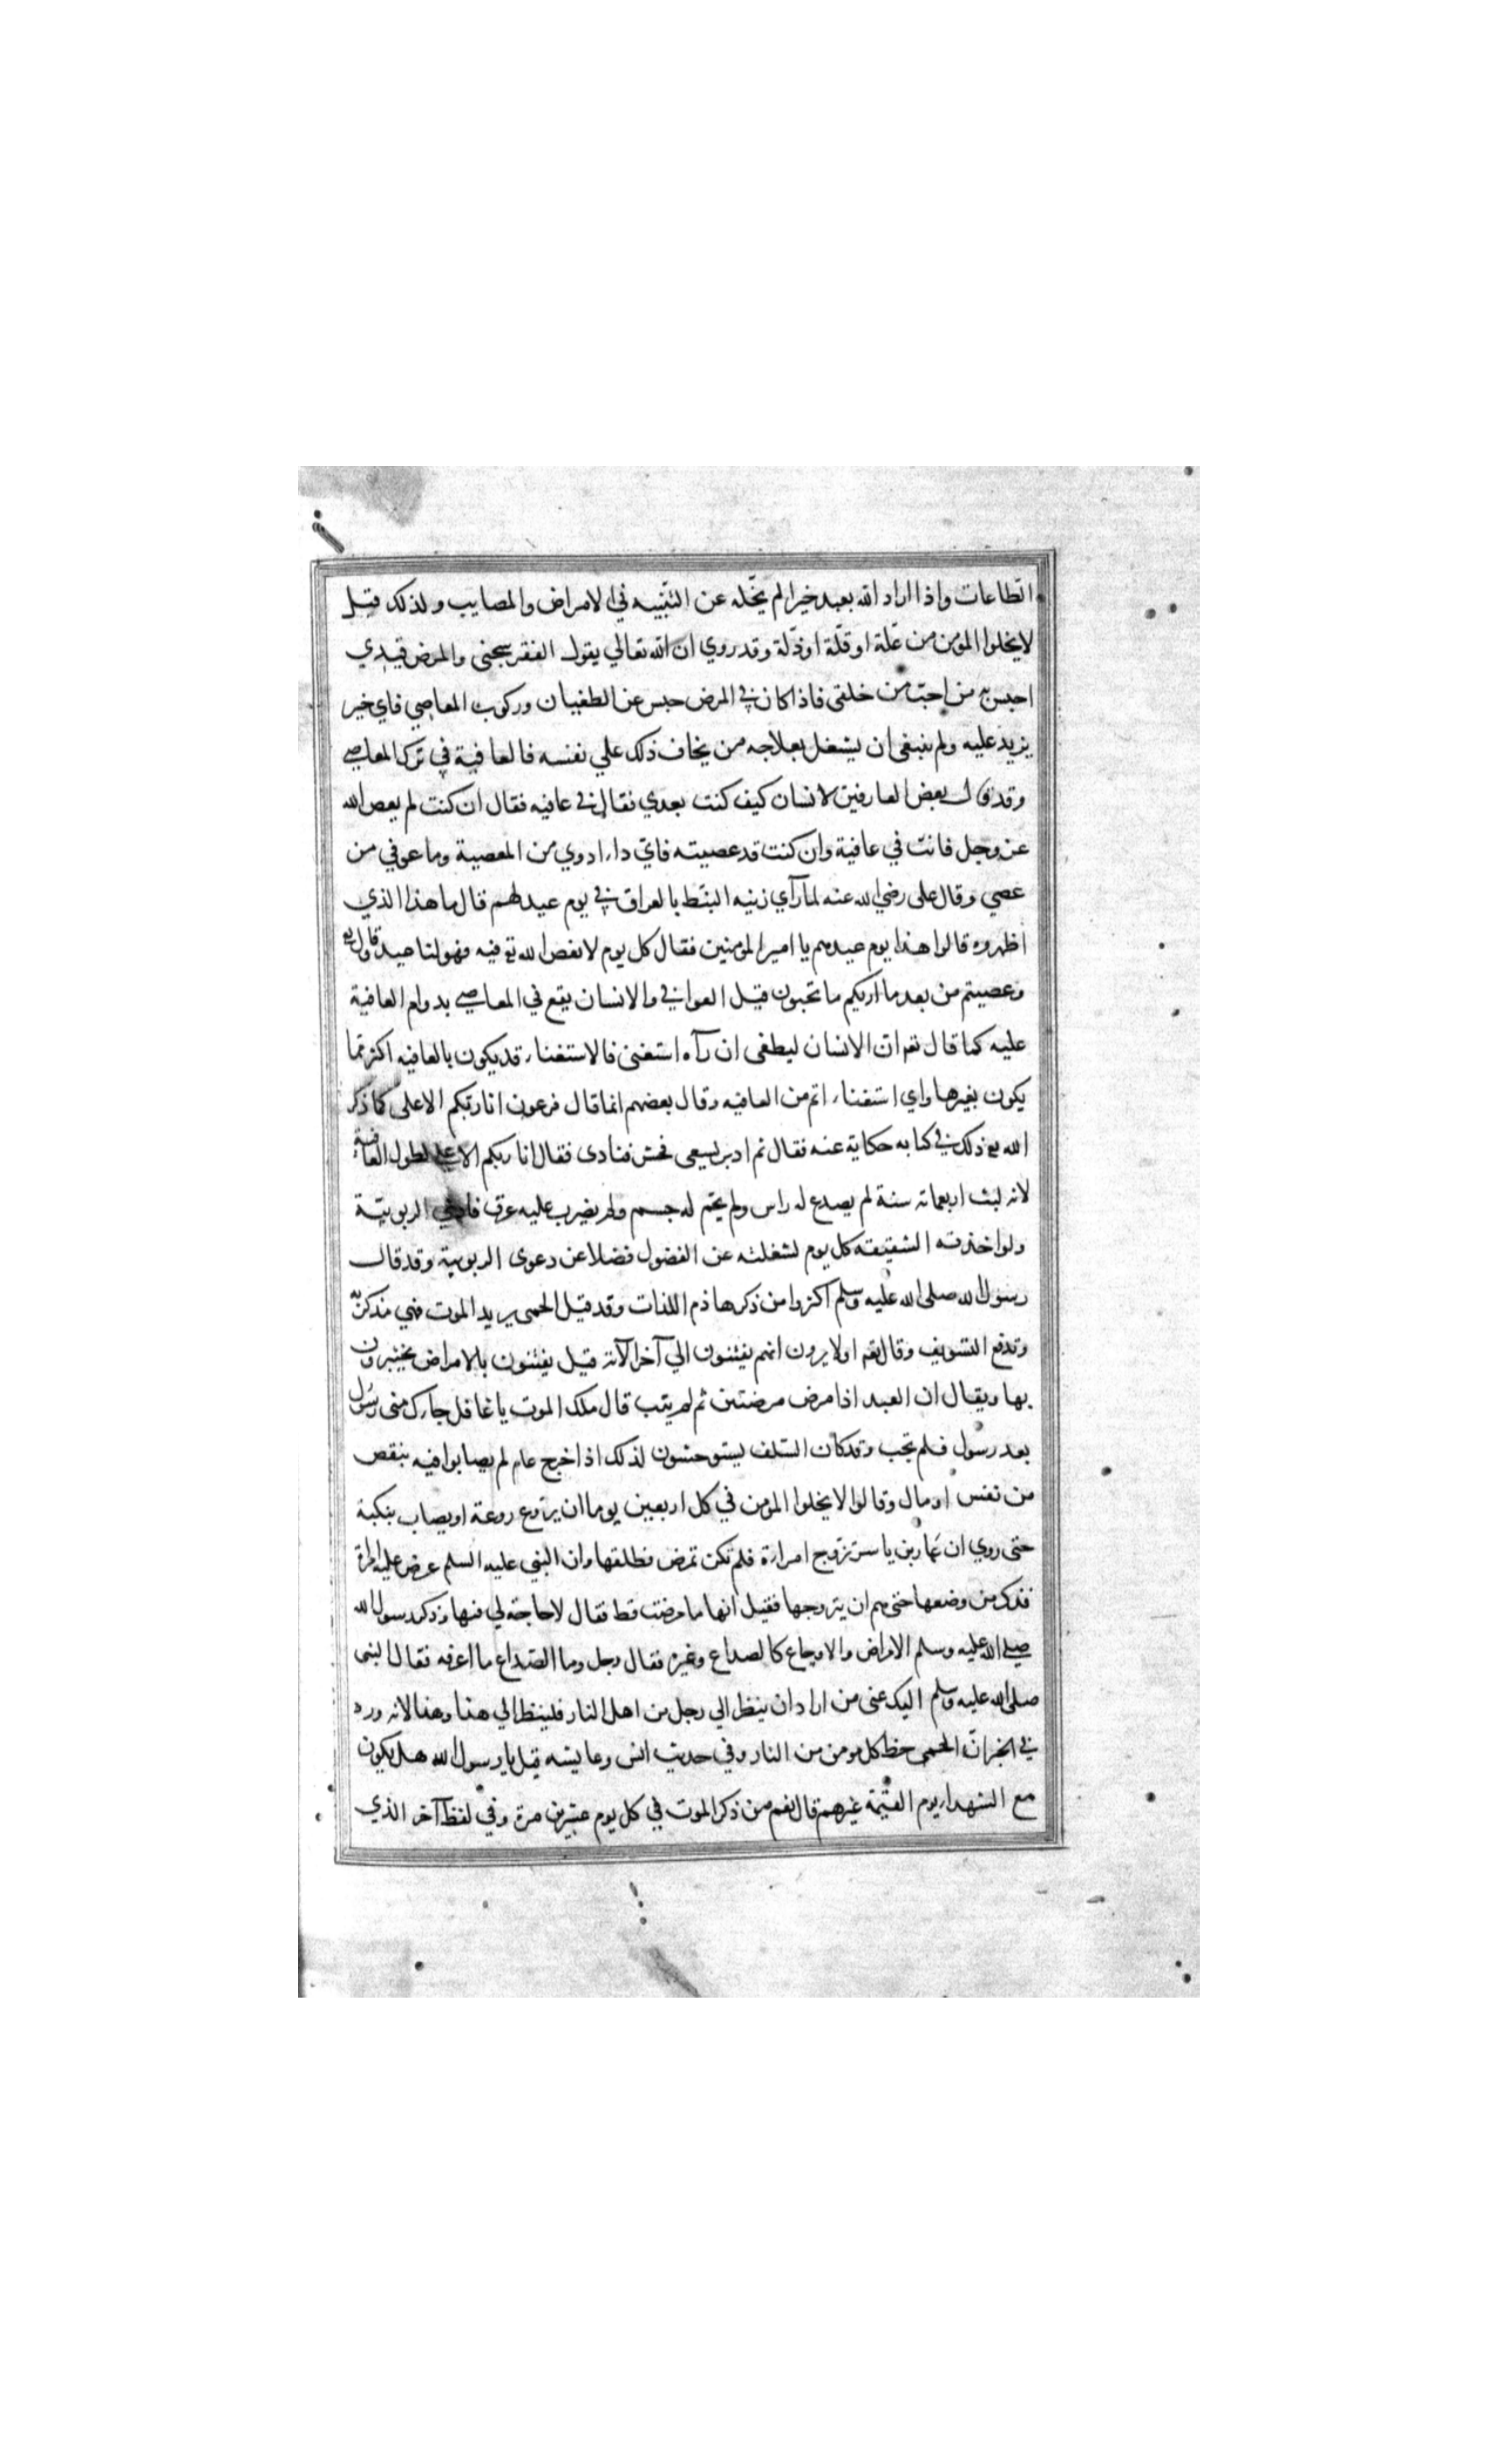 الطاعات واذا اراد الله بعبد خيرا لم يخله عن التنبيه في الامراض والمصايب ولذلك قيل
لا يخلوا المؤمن من علة او قلة او ذلة وقد روي ان الله تعالي يقول الفقر سجني والمرض قيدي
احبس به من احب من خلقي فاذا كان في المرض حبس عن الطغيان وركوب المعاصي فاي خير
يزيد عليه ولم ينبغي ان يشغل بعلاجه من يخاف ذلك علي نفسه فالعافية في ترك المعاصي
وقد قال بعض العارفين لانسان كيف كنت بعدي فقال في عافيه فقال ان كنت لم يعص الله
عز وجل فانت في عافية وان كنت قد عصيته فاي داء ادوي من المعصية وما عوفي من
عصي وقال علي رضي الله عنه لما رآي زينه النبط بالعراق في يوم عيد لهم قال ما هذا الذي
اظهروه قالوا هذا يوم عيدهم يا امير المؤمنين فقال كل يوم لا نعص الله تع فيه فهو لنا عيد وقال تع
وعصيتم من بعد ما اريكم ما تحبون قيل العوافي والانسان يقع في المعاصي بدوام العافية
عليه كما قال تعم ان الانسان ليطغى ان رآه استغنى فالاستغناء قد يكون بالعافيه اكثر مما
يكون بغيرها واي استغناء اتم من العافيه وقال بعضهم انما قال فرعون انا ربكم الاعلى كما ذكر
الله تع ذلك في كتابه حكاية عنه فقال ثم ادبر يسعى فحشر فنادى فقال انا ربكم الاعلي لطول العافية
لانه لبث اربعمائه سنة لم يصدع له راس ولم يحم له جسم ولم يضرب عليه عرق فادعي الربوبية
ولو اخذته الشقيقه كل يوم لشغلته عن الفضول فضلا عن دعوى الربوبية وقد قال
رسول الله صلى الله عليه وسلم اكثروا من ذكر هاذم اللذات وقد قيل الحمى بريد الموت فهي مذكرة به
وتدفع التسويف وقال تعم اولا يرون انهم يفتنون الي آخر الآيه قيل يفتنون بالامراض يختبرون
بها ويقال ان العبد اذا مرض مرضتين ثم لم يتب قال ملك الموت يا غافل جاءك مني رسول
بعد رسول فلم تجب وقد كان السلف يستوحشون لذلك اذا خرج عام لم يصابوا فيه بنقص
من نفس او مال وقالوا لا يخلوا المؤمن في كل اربعين يوما ان يروع روعة او يصاب بنكبة
حتى روي ان عمار بن ياسر تزوج امراءة فلم تكن تمرض فطلقها وان النبي عليه السلم عرض عليه امراة
فذكر من وصفها حتى هم ان يتزوجها فقيل انها ما مرضت قط فقال لا حاجة لي فيها وذكر رسول الله
صلي الله عليه وسلم الامراض والاوجاع كالصداع وغيره فقال رجل وما الصداع ما اعرفه فقال النبي
صلى الله عليه وسلم اليك عني من اراد ان ينظر الي رجل من اهل النار فلينظر الي هذا وهذا لانه ورد
في الخبر ان الحمى حظ كل مومن من النار وفي حديث انس وعايشه قيل يا رسول الله هل يكون
مع الشهداء يوم القيمة غيرهم قال نعم من ذكر الموت في كل يوم عشرين مرة وفي لفظ آخر الذي